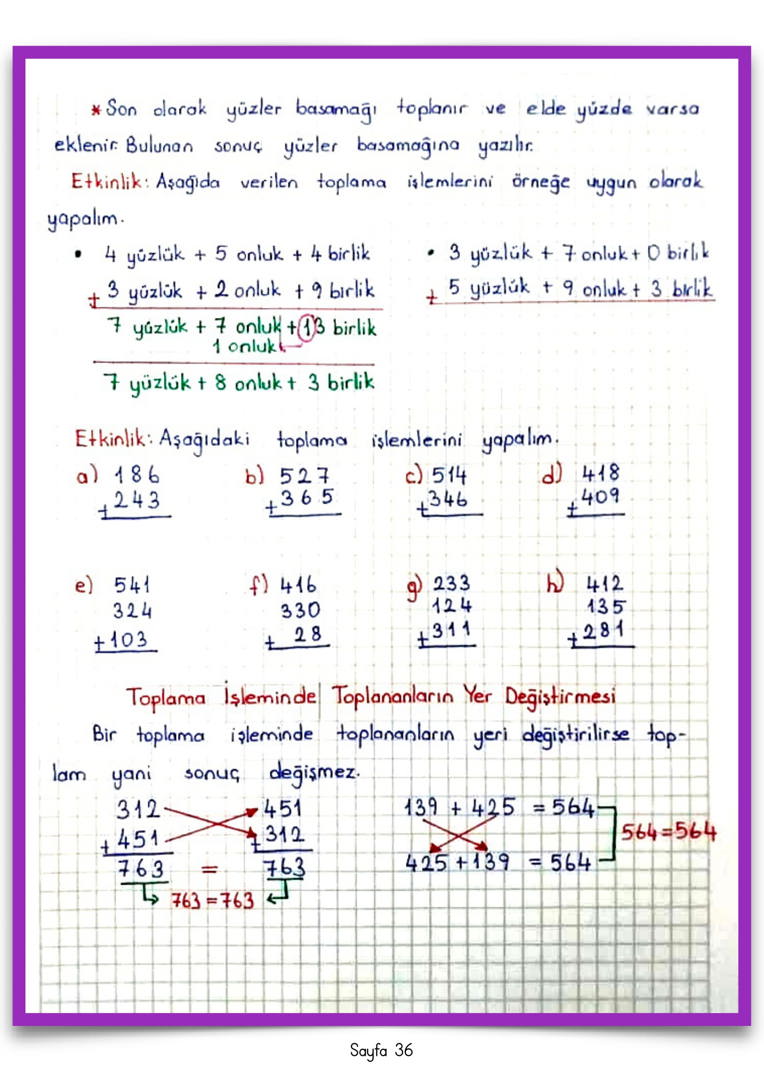 * Son olarak yüzler basamağı toplanır ve elde yüzde varsa
eklenir. Bulunan sonuç yüzler basamağına yazılır.
Etkinlik: Aşağıda verilen toplama işlemlerini örneğe uygun olarak
yapalım.
• 4 yüzlük + 5 onluk + 4 birlik
+ 3 yüzlük + 2 onluk + 9 birlik
7 yüzlük + 7 onluk + 13 birlik
1 onluk
7 yüzlük + 8 onluk + 3 birlik
• 3 yüzlük + 7 onluk + 0 birlik
+ 5 yüzlük + 9 onluk + 3 birlik
Etkinlik: Aşağıdaki toplama işlemlerini yapalım.
a) 186 b) 527 c) 514 d) 418
+243 +365 +346 +409
e) 541 f) 416 g) 233 h) 412
324 330 124 135
+103 + 28 +311 +281
Toplama İşleminde Toplananların Yer Değiştirmesi
Bir toplama işleminde toplananların yeri değiştirilirse top-
lam yani sonuç değişmez.
312 451
+451 +312
763 = 763
763=763
139 + 425 = 564
564=564
425+139 = 564
Sayfa 36